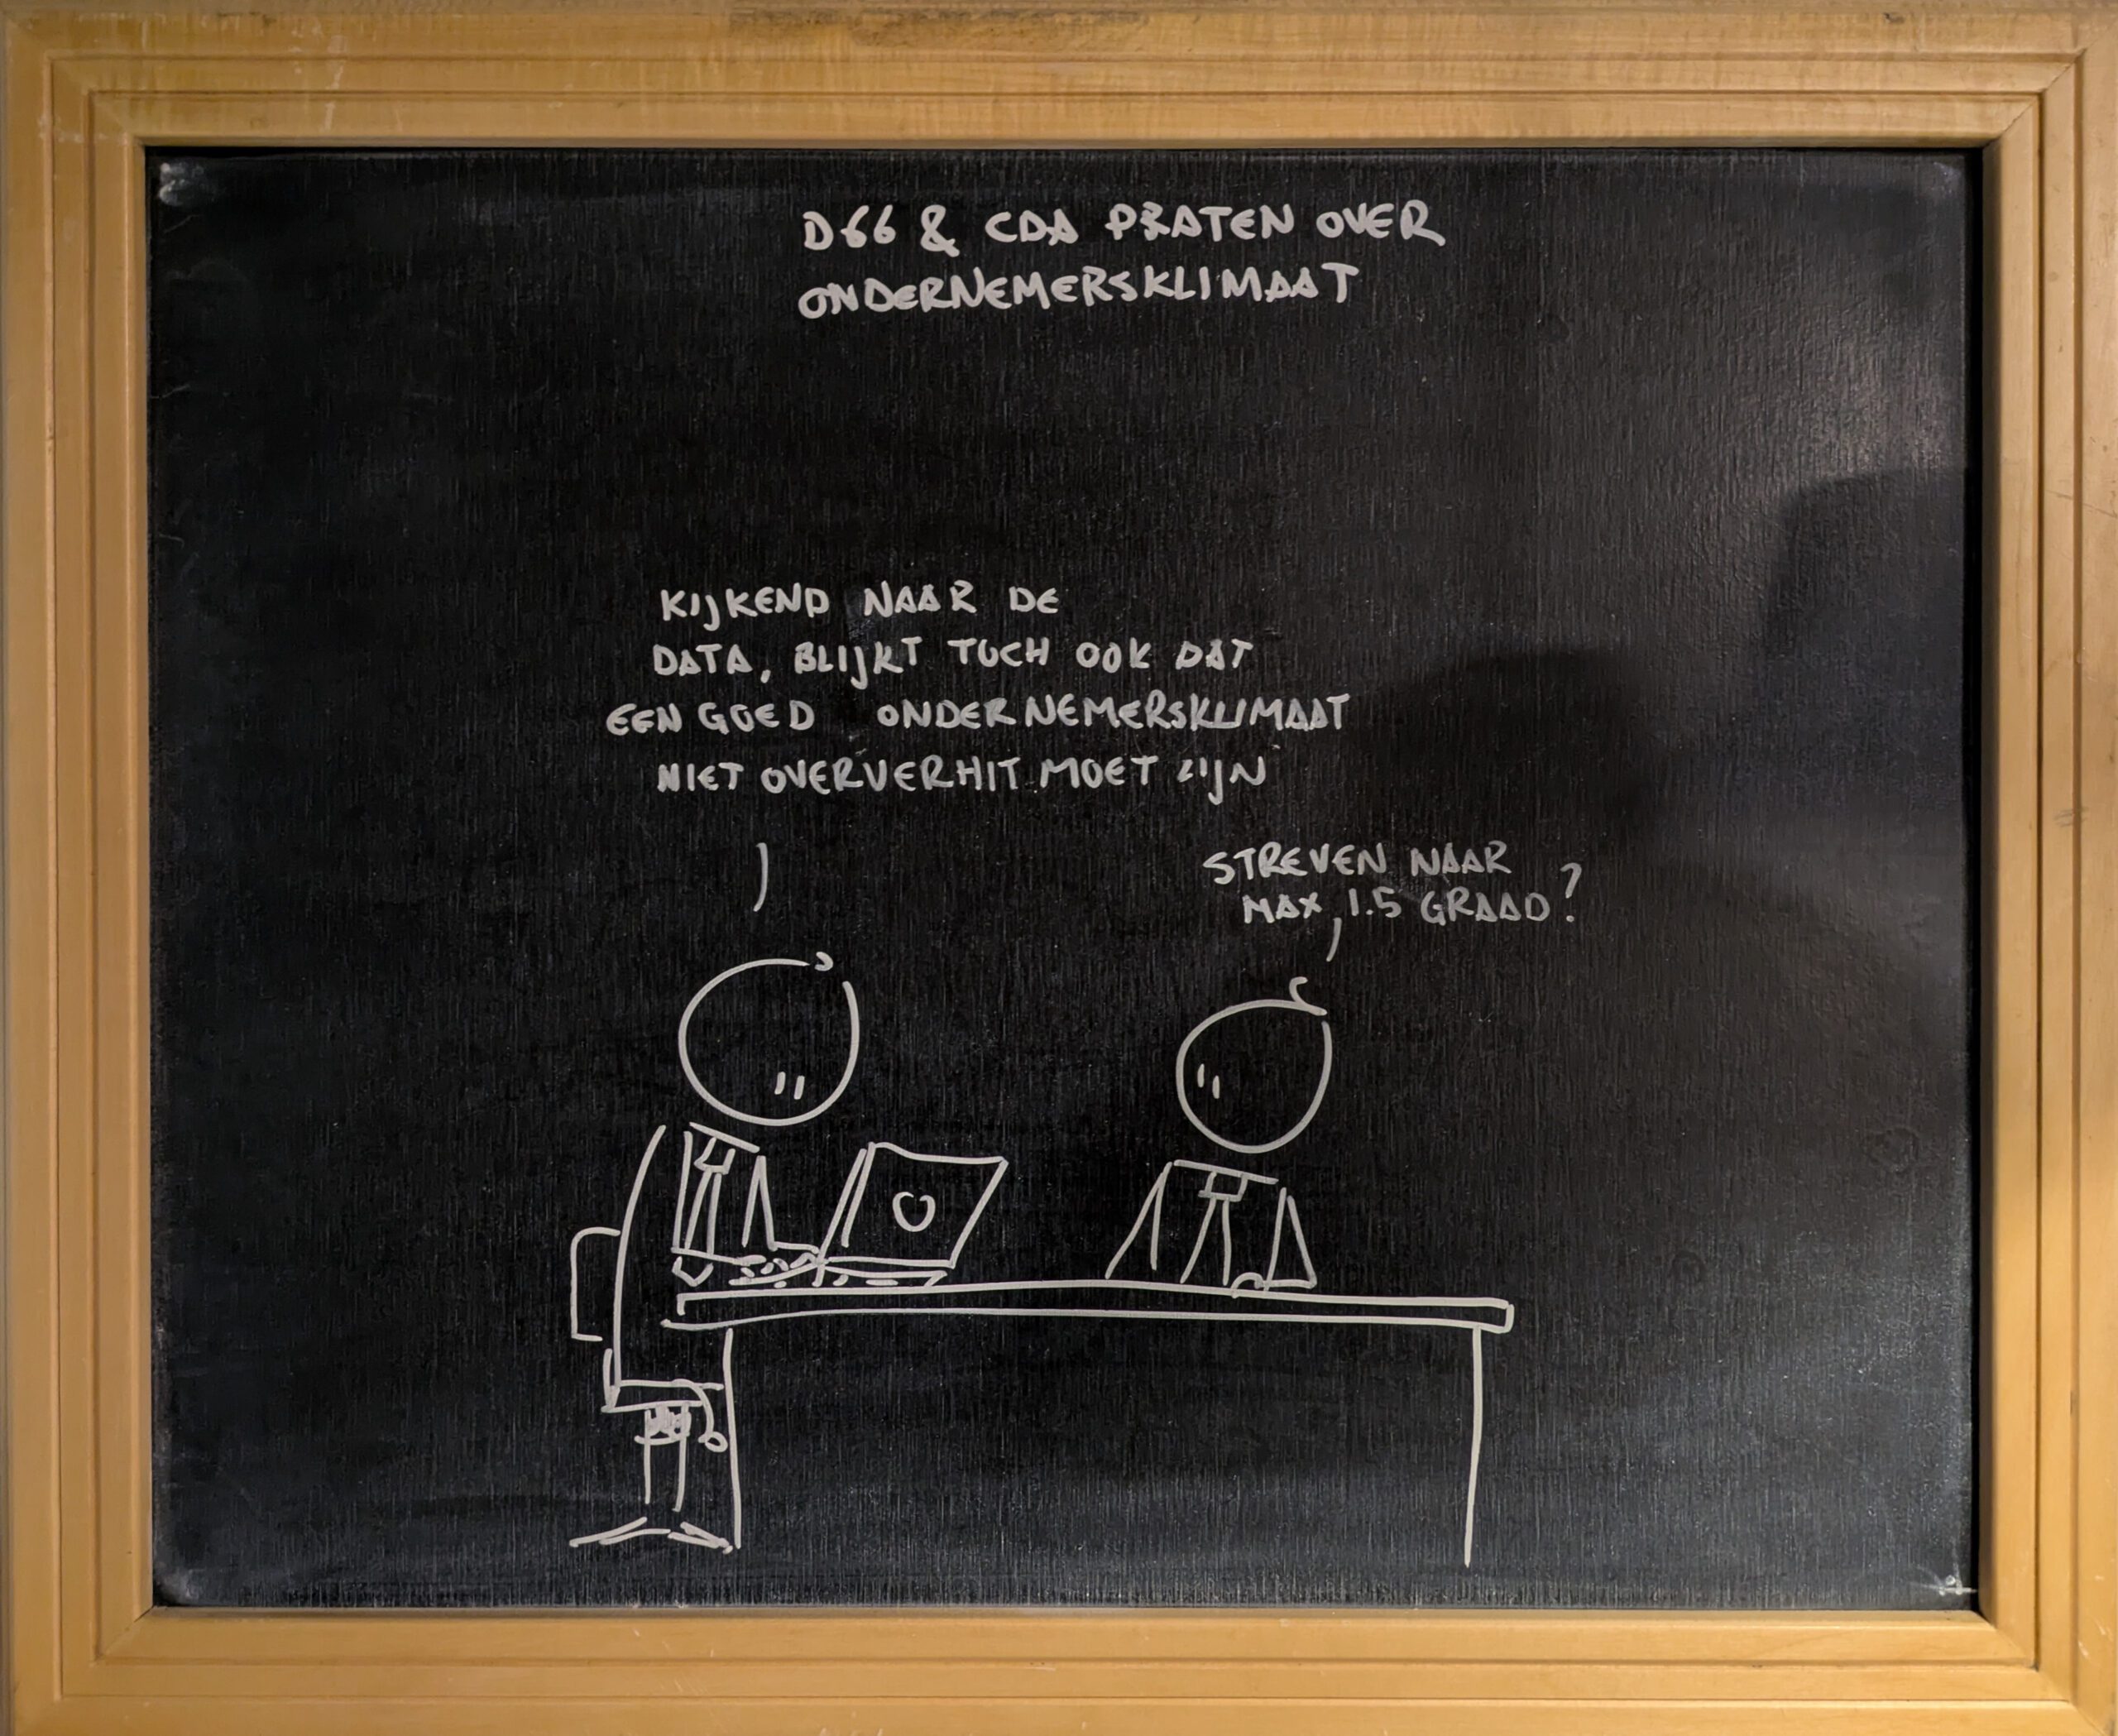 D66 & CDA PRATEN OVER
ONDERNEMERSKLIMAAT
KIJKEND NAAR DE
DATA, BLIJKT TOCH OOK DAT
EEN GOED ONDERNEMERSKLIMAAT
NIET OVERVERHIT MOET ZIJN
STREVEN NAAR
MAX 1.5 GRAAD?